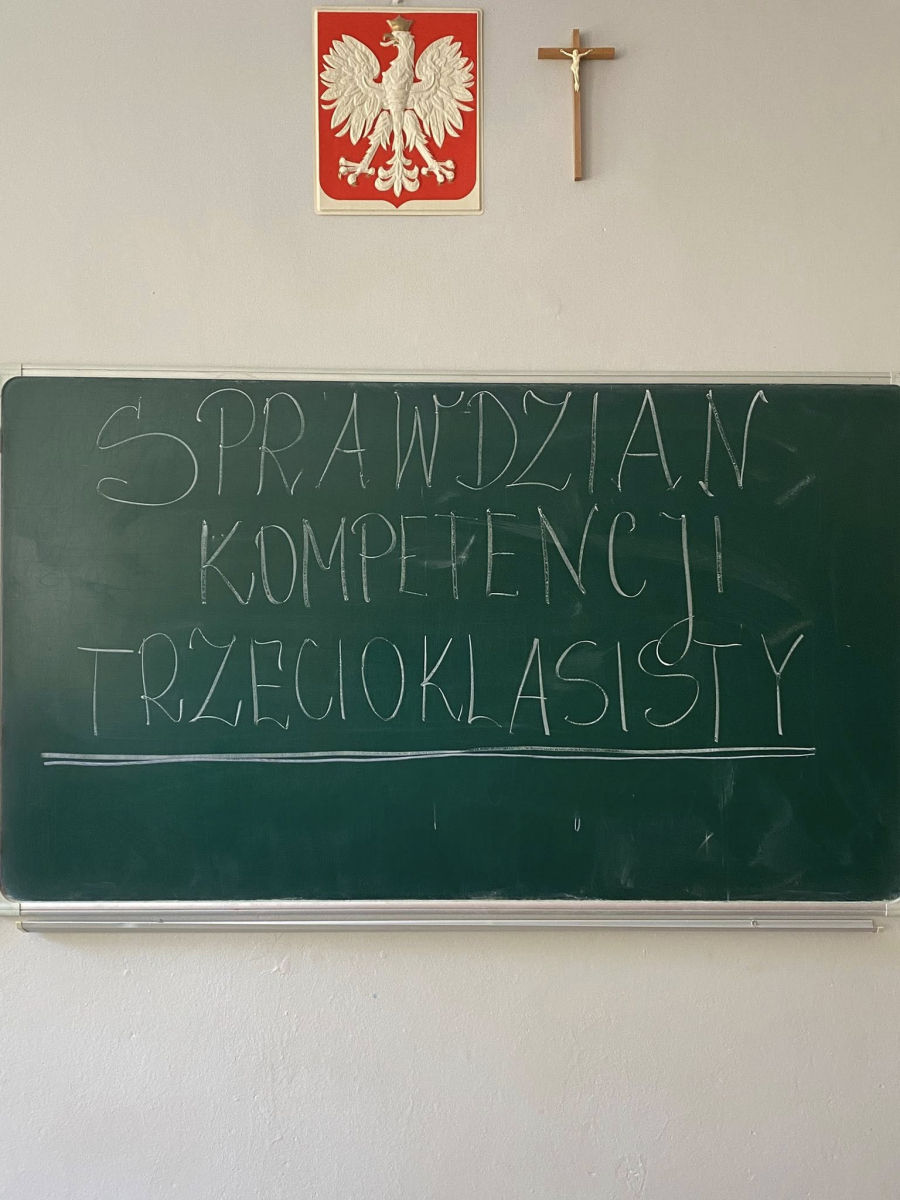 SPRAWDZIAN
KOMPETENCJI
TRZECIOKLASISTY